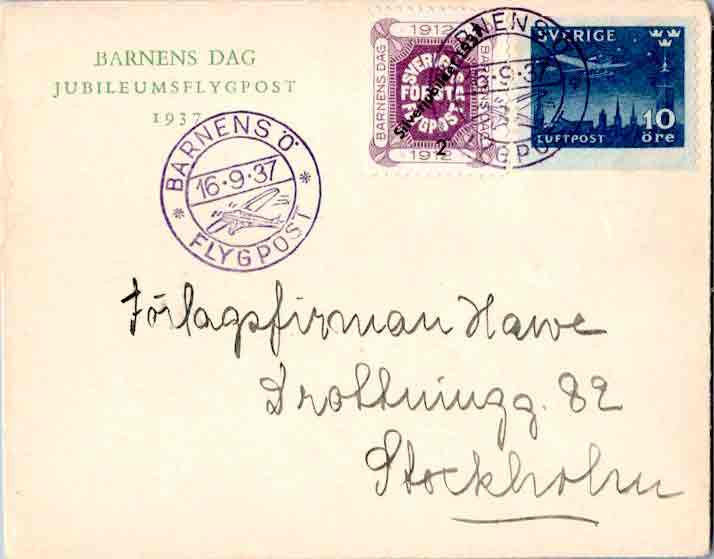 BARNENS DAG
JUBILEUMSFLYGPOST
1937
BARNENS Ö
16·9·37
FLYGPOST
1912
BARNENS DAG
SVERIGES
FÖRSTA
FLYGPOST
BARNENS DAG
1912
Silverjubileet 1937
2
BARNENS Ö
16·9·37
FLYGPOST
SVERIGE
LUFTPOST
10
öre
Förlagsfirman Hawe
Drottningg. 82
Stockholm